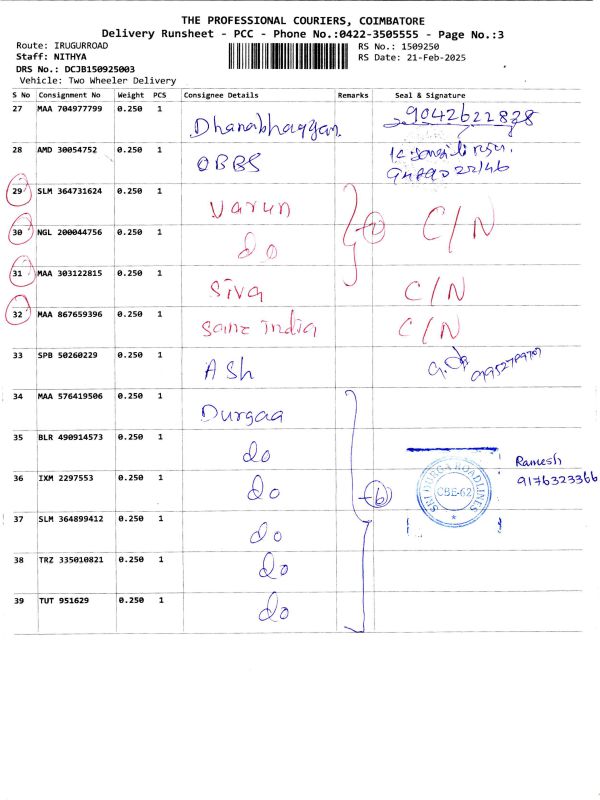 THE PROFESSIONAL COURIERS, COIMBATORE
Delivery Runsheet - PCC - Phone No.:0422-3505555 - Page No.:3
Route: IRUGURROAD
RS No.: 1509250
Staff: NITHYA
RS Date: 21-Feb-2025
DRS No.: DCJB150925003
Vehicle: Two Wheeler Delivery
S No Consignment No Weight PCS Consignee Details Remarks Seal & Signature
27 MAA 704977799 0.250 1 9042622828
28 AMD 30054752 0.250 1 OBBS
29 SLM 364731624 0.250 1 Varun C/N
30 NGL 200044756 0.250 1 do
31 MAA 303122815 0.250 1 Siva C/N
32 MAA 867659396 0.250 1 india C/N
33 SPB 50260229 0.250 1 Ash
34 MAA 576419506 0.250 1 Durgaa
35 BLR 490914573 0.250 1 do
36 IXM 2297553 0.250 1 do
37 SLM 364899412 0.250 1 do
38 TRZ 335010821 0.250 1 do
39 TUT 951629 0.250 1 do
6
SRI DURGA ROADLINES
CBE-62
Ramesh
9176323366